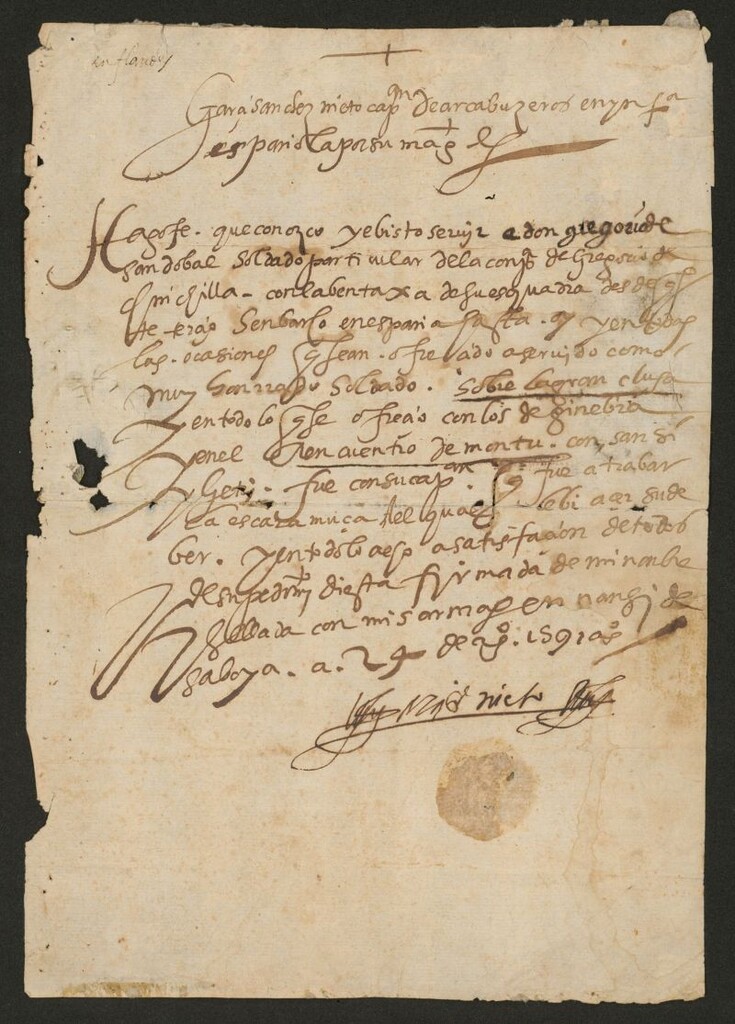 en flandes
Garcia sanchez nieto capm de arcabuzeros en ynfa
española por su magd
Hago fe. que conozco y e bisto servir a don gregorio de
sandobal soldado particular de la conpa de Gregorio de
chinchilla - con la bentaxa de su esquadra desde que
se enbarco en españa fasta. oy y en todas
las. ocasiones que sean. ofrecido a servido como
muy honrrado soldado. sobre la gran clusa
y en todo lo que se ofrecio con los de ginebra
y en el Renquentro de montu. con, san si
y fue con su capan. que fue a trabar
la escaramuça del qual le bi acer su de
ber. y en todo lo aecho a satisfaçion de todos
de su pedimto di esta firmada de mi nonbre
y sellada con mis armas en nangi de
saboya. a. 24 de 1591 as
nieto